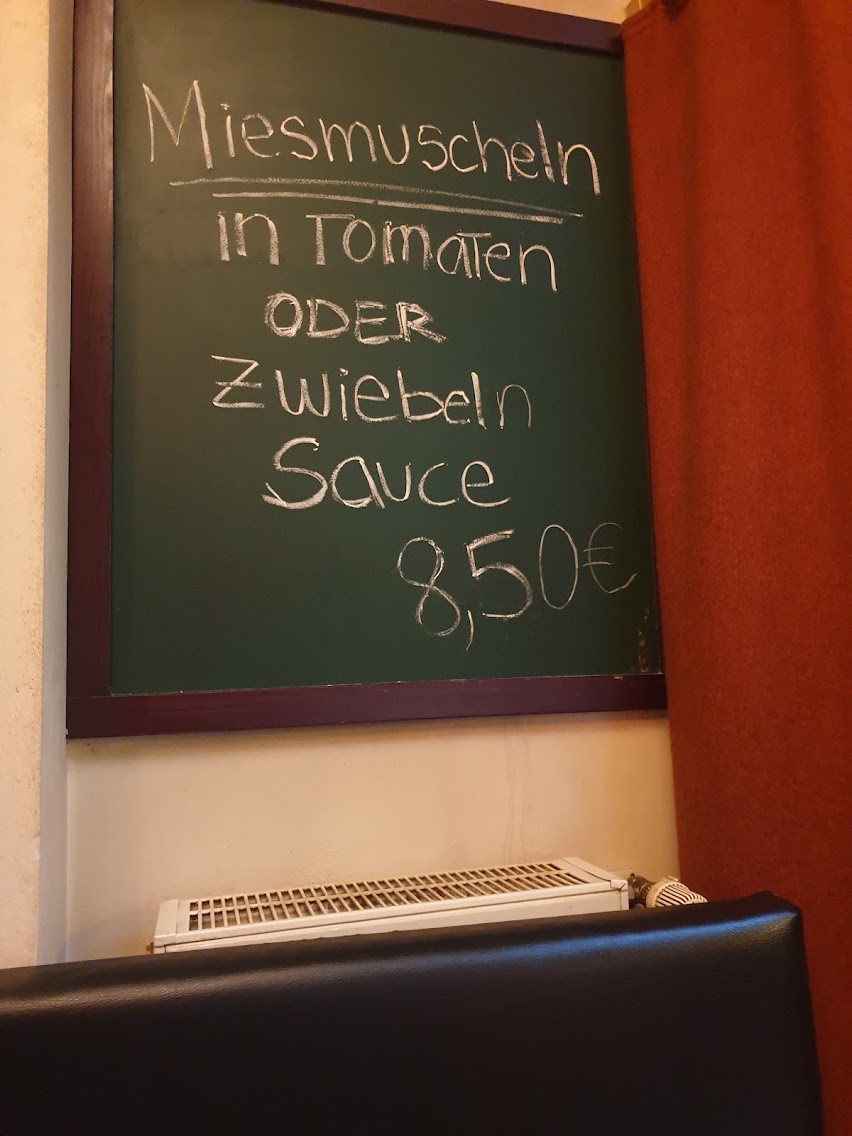 Miesmuscheln
in Tomaten
ODER
Zwiebeln
Sauce
8,50€